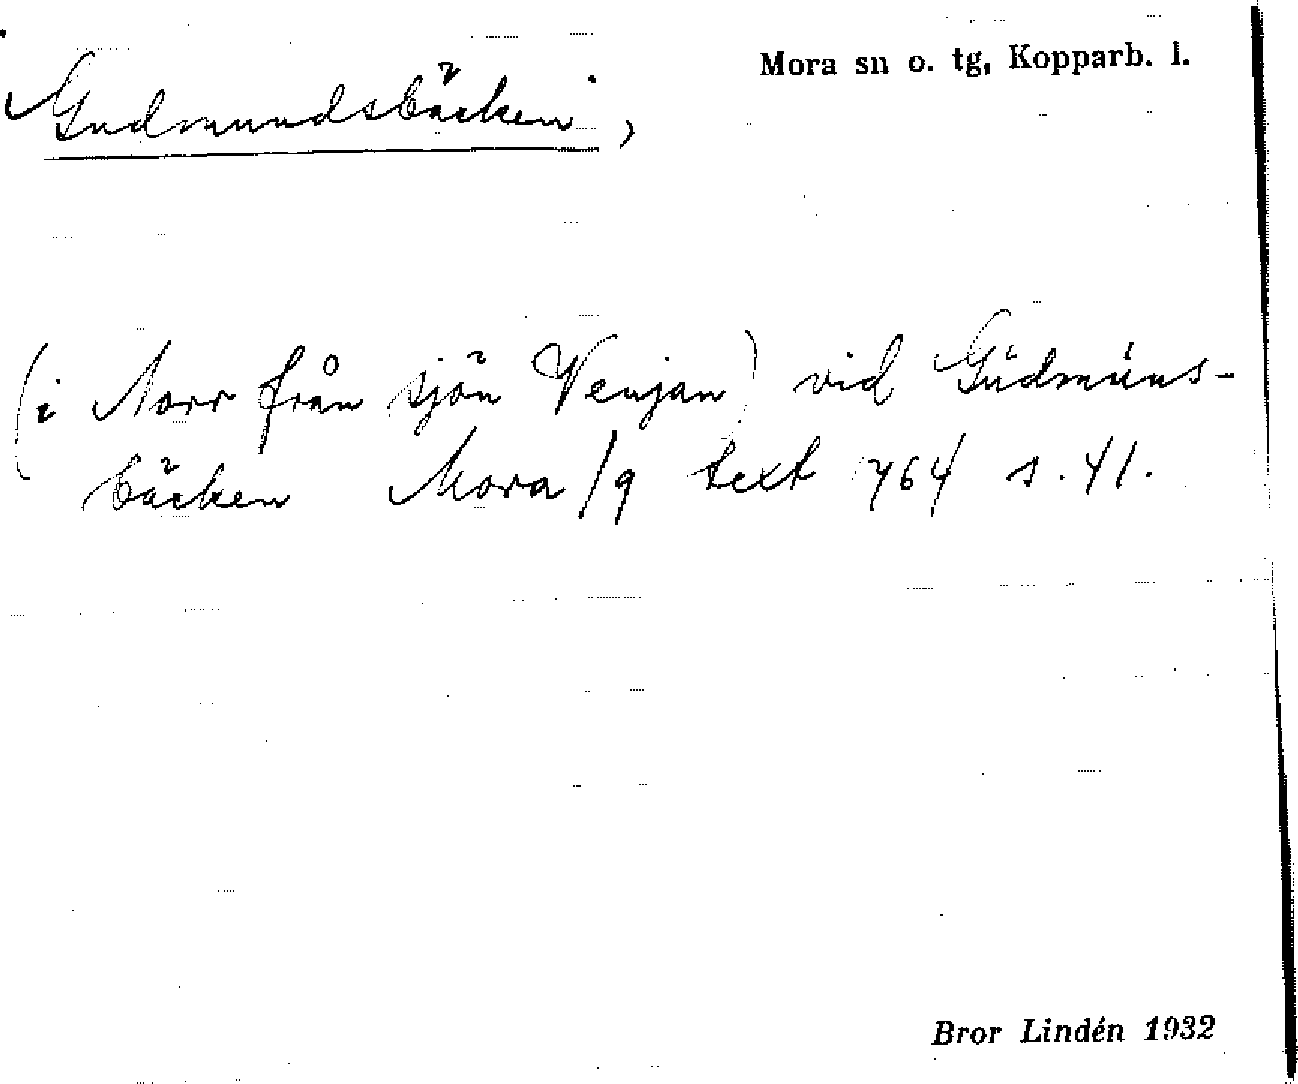 Gudmundsbäcken,
Mora sn o. tg, Kopparb. l.
(i Norr från sjön Venjan) vid Gudmuns-
bäcken Mora/9 text 764 s. 41.
Bror Lindén 1932